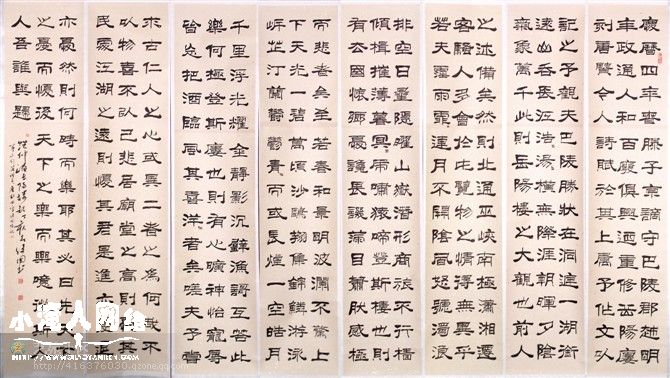 慶曆四年春滕子京謫守巴陵郡越明
年政通人和百廢俱興乃重修岳陽樓
刻唐賢今人詩賦於其上屬予作文以
記之予觀夫巴陵勝狀在洞庭一湖銜
遠山吞長江浩浩湯湯橫無際涯朝暉夕陰
氣象萬千此則岳陽樓之大觀也前人
之述備矣然則北通巫峽南極瀟湘遷
客騷人多會於此覽物之情得無異乎
若夫霪雨霏霏連月不開陰風怒號濁浪
排空日星隱曜山嶽潛形商旅不行檣
傾楫摧薄暮冥冥虎嘯猿啼登斯樓也則
有去國懷鄉憂讒畏譏滿目蕭然感極
而悲者矣至若春和景明波瀾不驚上
下天光一碧萬頃沙鷗翔集錦鱗游泳
岸芷汀蘭鬱鬱青青而或長煙一空皓月
千里浮光耀金靜影沉璧漁歌互答此
樂何極登斯樓也則有心曠神怡寵辱
皆忘把酒臨風其喜洋洋者矣嗟夫予嘗
求古仁人之心或異二者之為何哉不
以物喜不以己悲居廟堂之高則憂其
民處江湖之遠則憂其君是進亦憂退
亦憂然則何時而樂耶其必曰先天下
之憂而憂後天下之樂而樂噫微斯
人吾誰與歸
http://416376030.qzone.qq.com